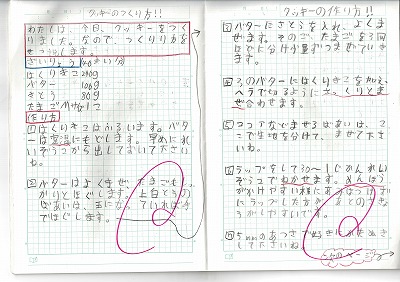 クッキーのつくり方!!
わたしは、今日、クッキーをつく
りました。なので、つくり方を
せつ明します。
ざいりょう
はくりきこ200g
バター 100g
さとう 80g
たまご
作り方
①はくりきこはふるいます。バタ
ーは室温にもどします。早めにれ
いぞうこから出しておいてくださ
いね。
②バターはよくまぜ、たまごも
とほぐします。上白とうの
ばあいは、玉になっていれば手
でほぐします。
クッキーの作り方!!
③バターにさとうを入れ、よくま
ぜます。そのごたまごを3回
ほどに分け小量ずつまぜていき
ます。
④③のバターにはくりきこを加え、
ヘラで切るようにさっくりとま
ぜ合わせます。
⑤ココアなどまぜるばあいは、こ
こで生地を分けて、まぜて下さ
いね。
⑥ラップをして30〜1じかんれい
ぞうこでねかせます。めんぼう
がかけやすい様に
にラップした方があとのさぎょ
うがしやすいです。
⑦5mmのあつさで
して下さいね。